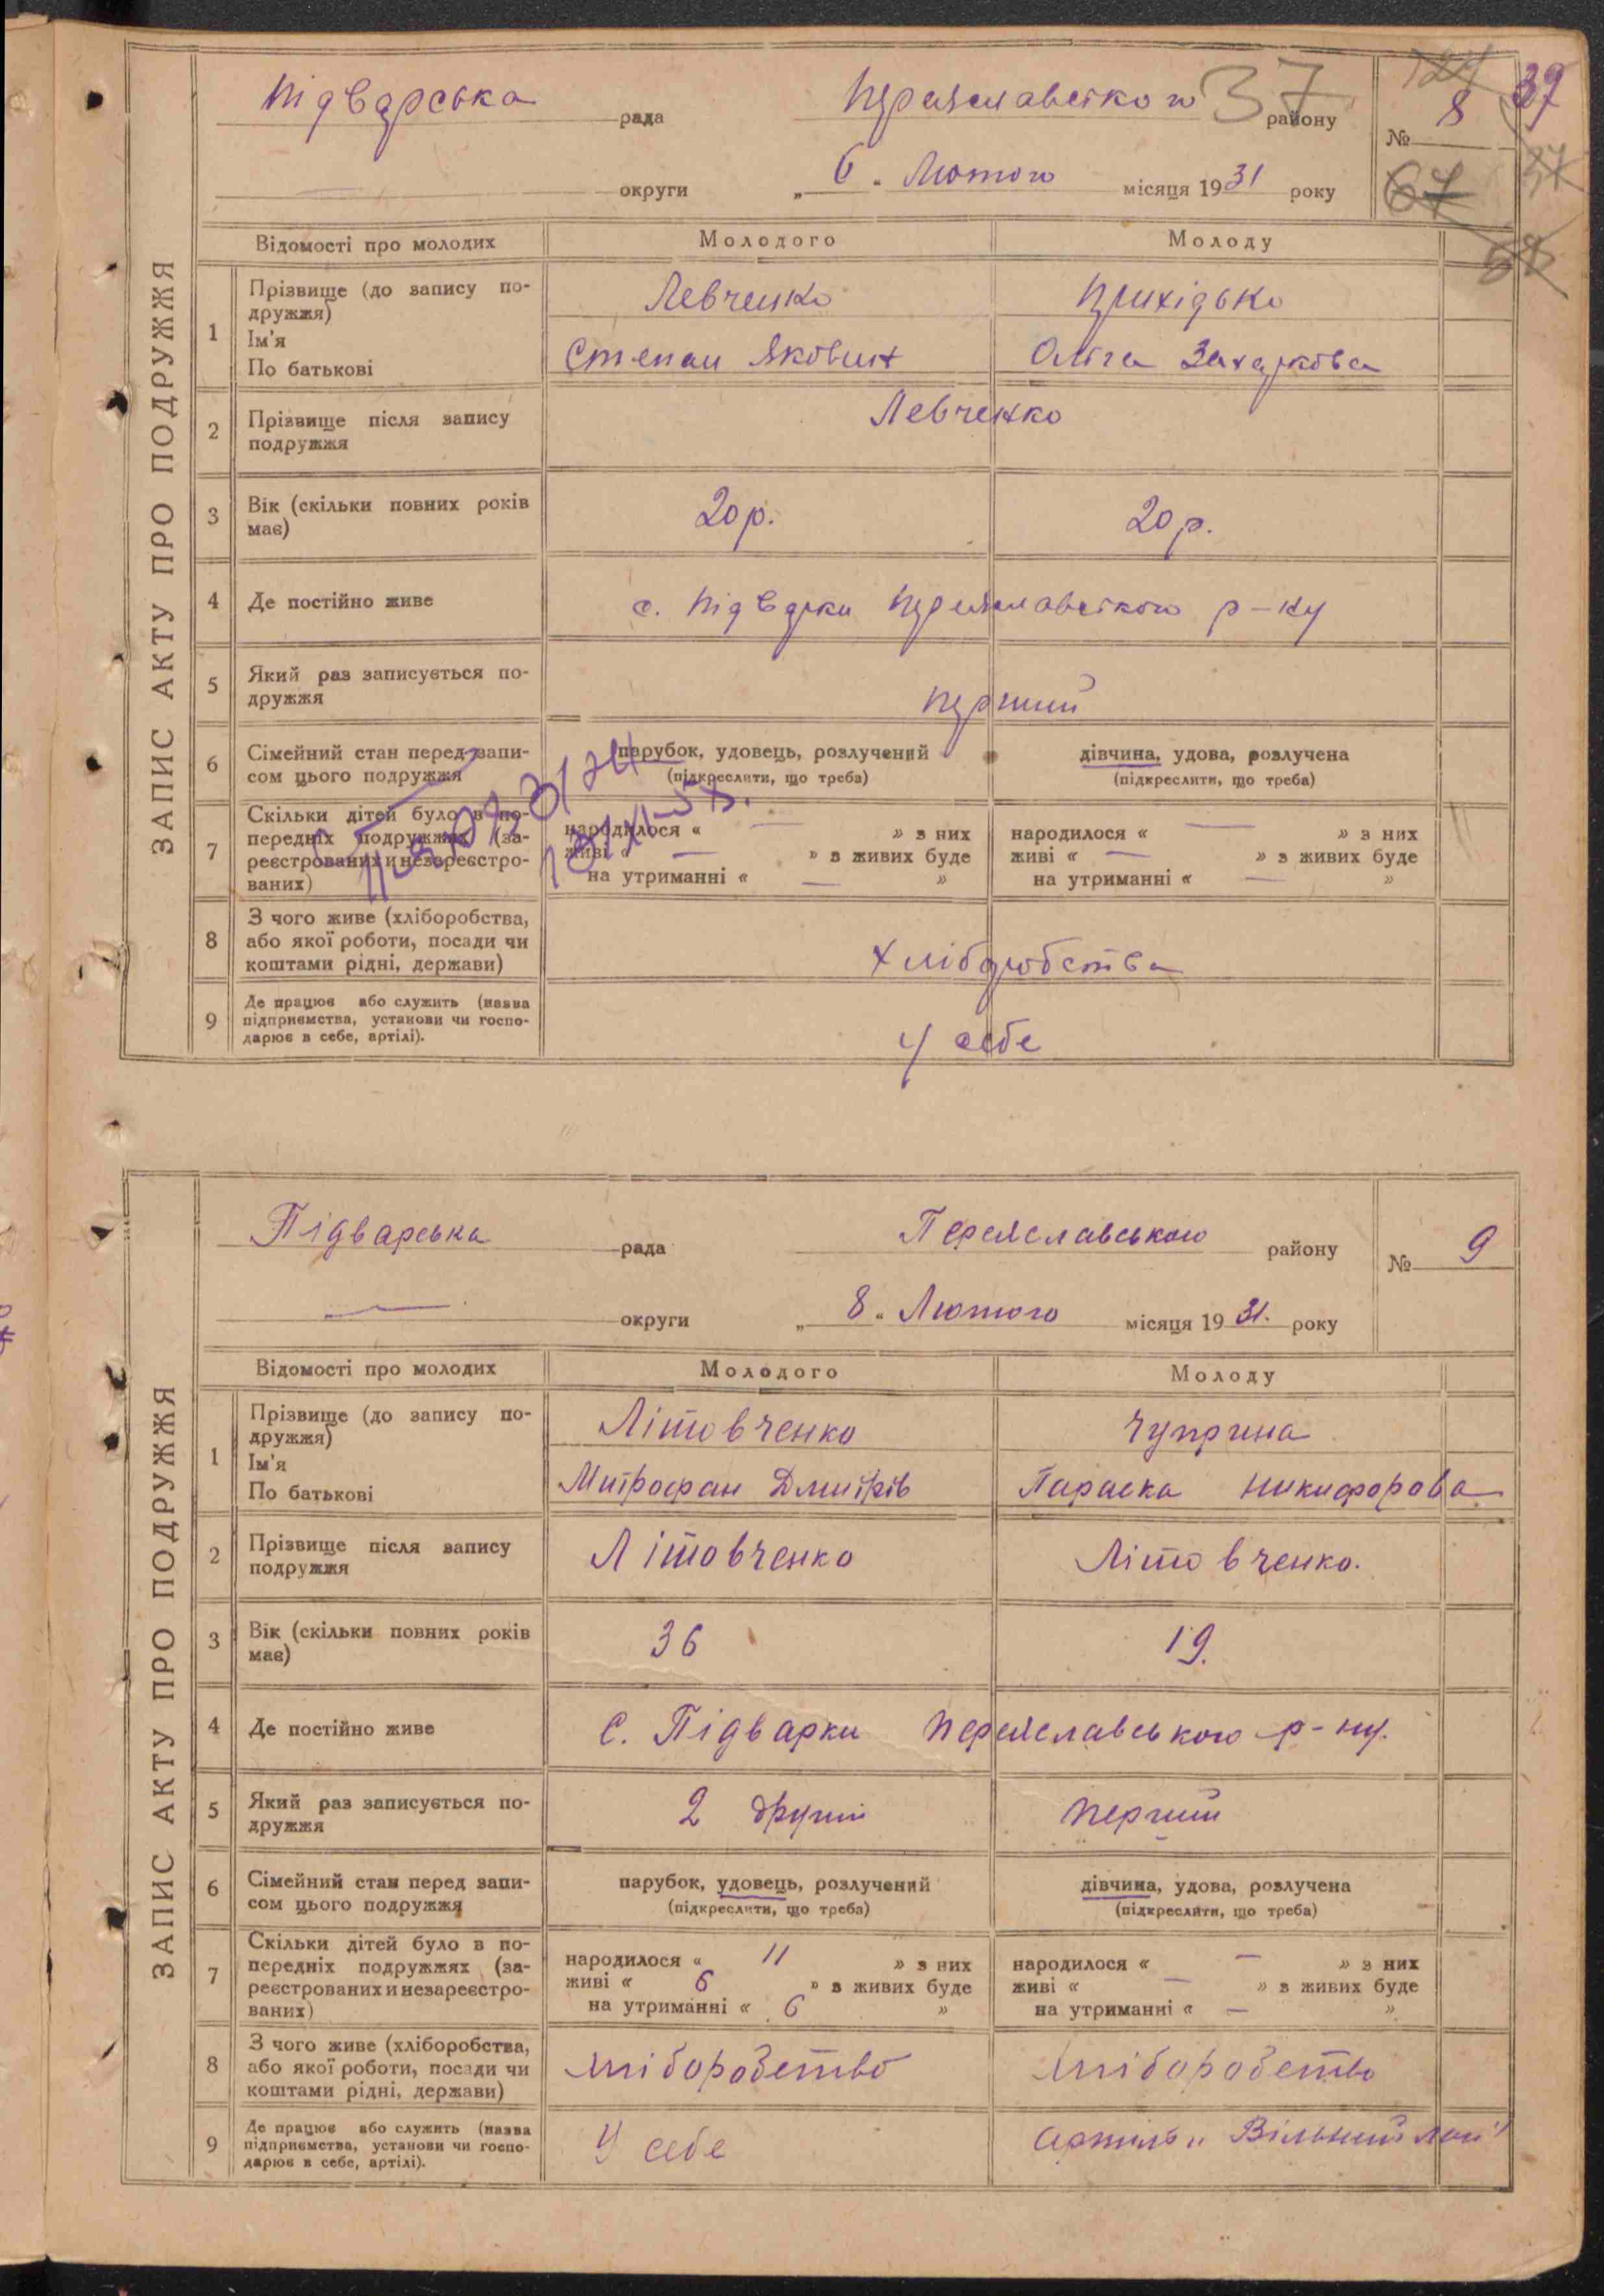 Підварська рада Переяславського 37 району № 8 39
округи „ 6 " Лютого місяця 1931 року 67 37
58
ЗАПИС АКТУ ПРО ПОДРУЖЖЯ
Відомості про молодих Молодого Молоду
1 Прізвище (до запису по-
дружжя) Левченко Прихідько
Ім'я
По батькові Степан Якович Ольга Захаркова
2 Прізвище після запису
подружжя Левченко
3 Вік (скільки повних років
має) 20 р. 20 р.
4 Де постійно живе с. Підварки Переяславського р-ну
5 Який раз записується по-
дружжя перший
6 Сімейний стан перед запи-
сом цього подружжя парубок, удовець, розлучений дівчина, удова, розлучена
(підкреслити, що треба) (підкреслити, що треба)
7 Скільки дітей було в по-
передніх подружжях (за-
реєстрованих и незареєстро-
ваних)
народилося « — » з них народилося « — » з них
живі « — » з живих буде живі « — » з живих буде
на утриманні « — » на утриманні « — »
8 З чого живе (хліборобства,
або якої роботи, посади чи
коштами рідні, держави) Хліборобства
9 Де працює або служить (назва
підприємства, установи чи госпо-
дарює в себе, артілі). У себе
Підварська рада Переяславського району № 9
— округи „ 8 " Лютого місяця 1931. року
ЗАПИС АКТУ ПРО ПОДРУЖЖЯ
Відомості про молодих Молодого Молоду
1 Прізвище (до запису по-
дружжя) Літовченко Чуприна
Ім'я
По батькові Митрофан Дмитрів Параска Никифорова
2 Прізвище після запису
подружжя Літовченко Літовченко.
3 Вік (скільки повних років
має) 36 19.
4 Де постійно живе С. Підварки Переяславського р-ну.
5 Який раз записується по-
дружжя 2 другий перший
6 Сімейний стан перед запи-
сом цього подружжя парубок, удовець, розлучений дівчина, удова, розлучена
(підкреслити, що треба) (підкреслити, що треба)
7 Скільки дітей було в по-
передніх подружжях (за-
реєстрованих и незареєстро-
ваних)
народилося « 11 » з них народилося « — » з них
живі « 6 » з живих буде живі « — » з живих буде
на утриманні « 6 » на утриманні « — »
8 З чого живе (хліборобства,
або якої роботи, посади чи
коштами рідні, держави) хліборобство хліборобство
9 Де працює або служить (назва
підприємства, установи чи госпо-
дарює в себе, артілі). У себе артиль „Вільний лан"